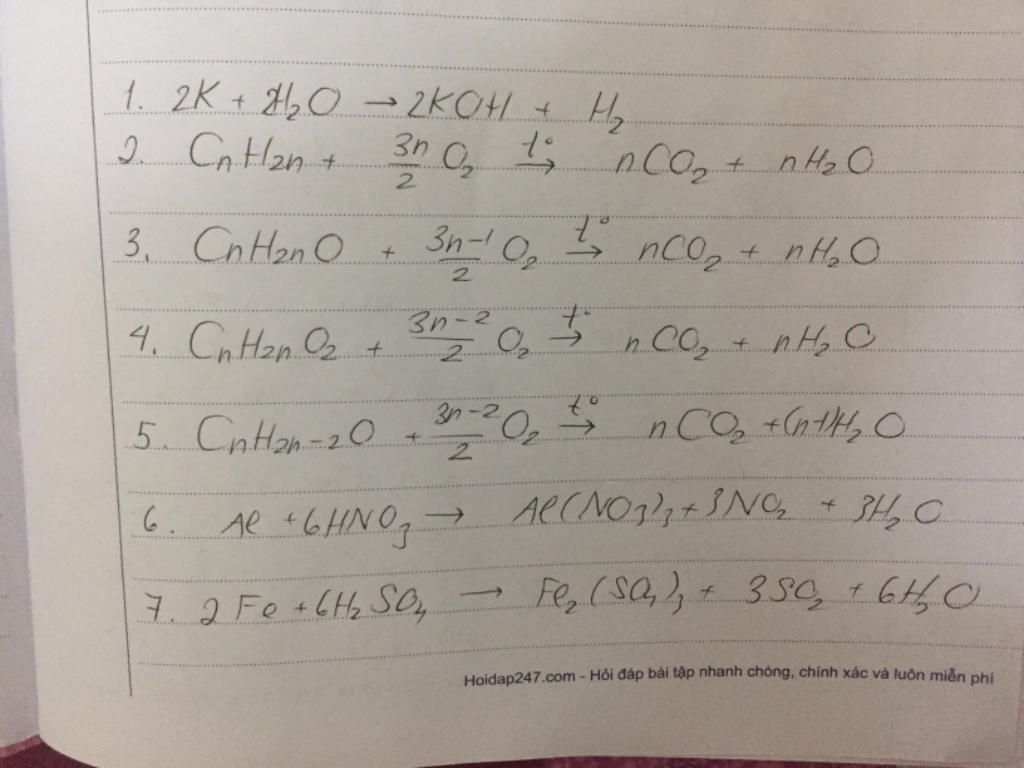 1. 2K + 2H₂O → 2KOH + H₂
2. CnH2n + 3n/2 O₂ t°→ nCO₂ + nH₂O
3. CnH2nO + 3n-1/2 O₂ t°→ nCO₂ + nH₂O
4. CnH2nO₂ + 3n-2/2 O₂ t°→ nCO₂ + nH₂O
5. CnH2n-2O + 3n-2/2 O₂ t°→ nCO₂ + (n-1)H₂O
6. Al + 6HNO₃ → Al(NO₃)₃ + 3NO₂ + 3H₂O
7. 2Fe + 6H₂SO₄ → Fe₂(SO₄)₃ + 3SO₂ + 6H₂O
Hoidap247.com - Hỏi đáp bài tập nhanh chóng, chính xác và luôn miễn phí